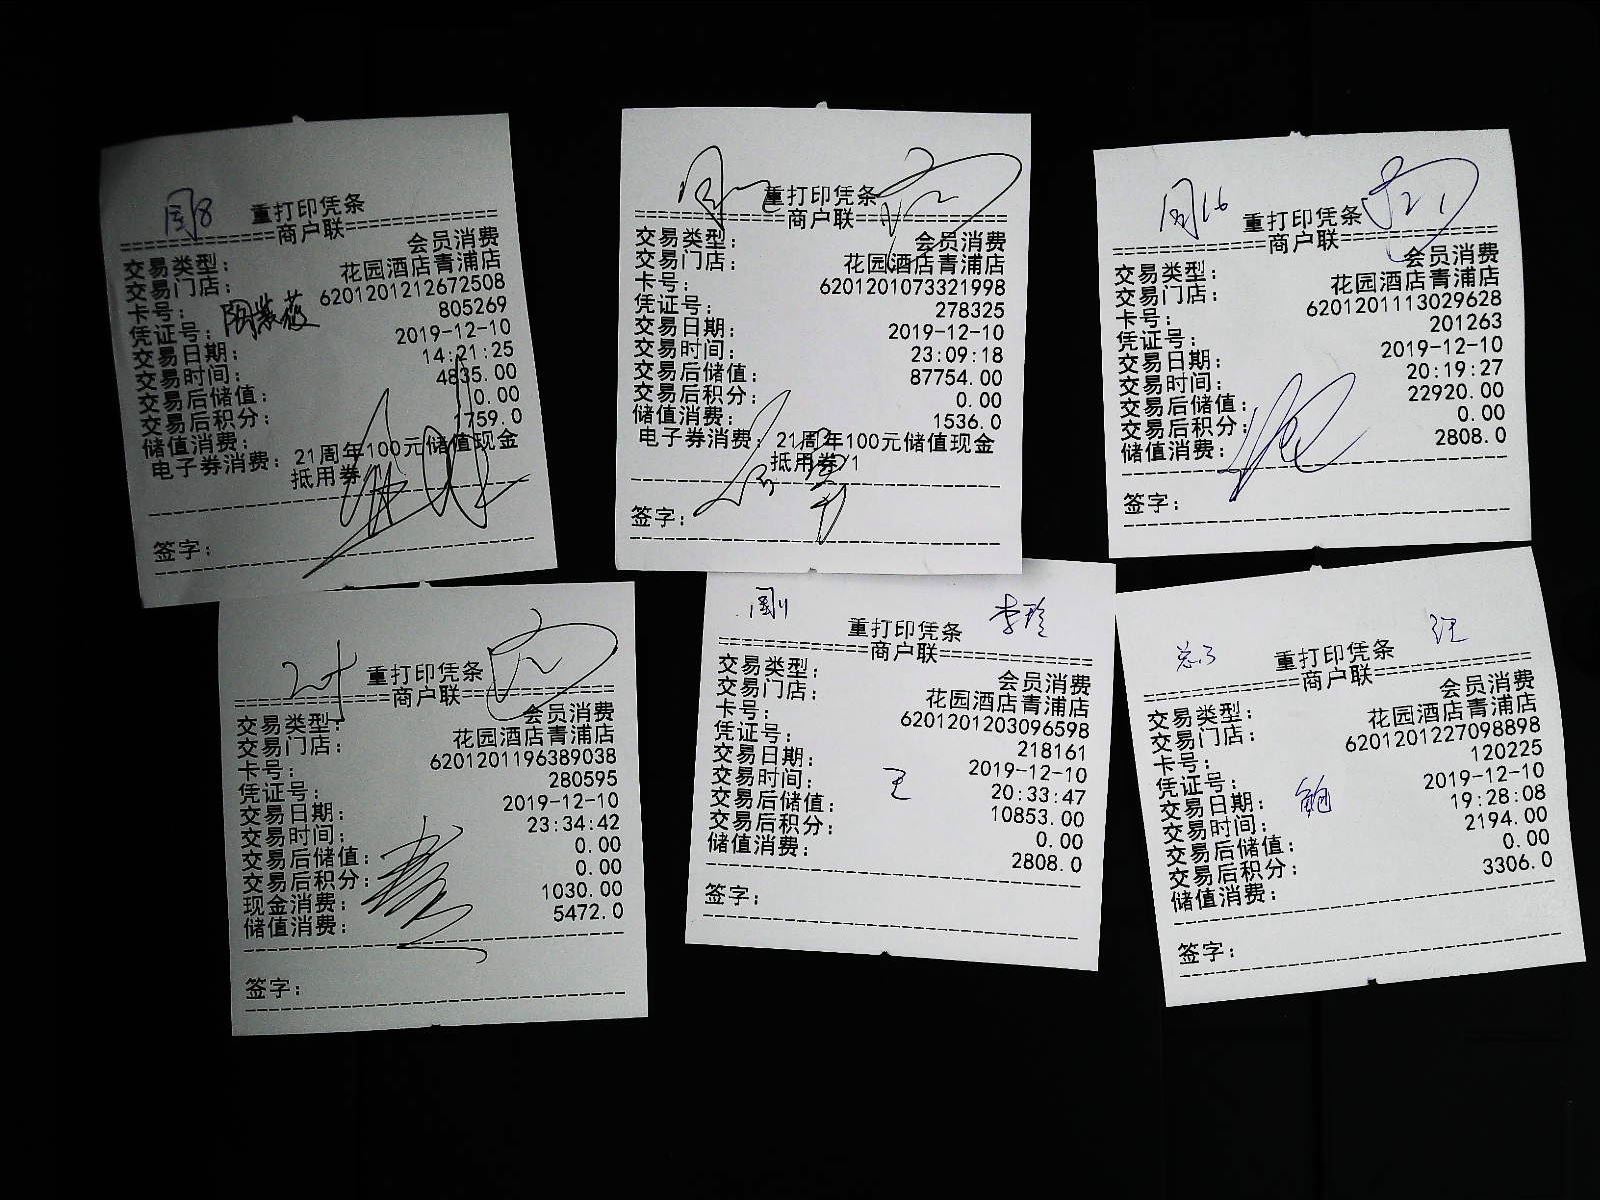 周8
重打印凭条
==============商户联==============
交易类型: 会员消费
交易门店: 花园酒店青浦店
卡号: 6201201212672508
凭证号: 805269
交易日期: 2019-12-10
交易时间: 14:21:25
交易后储值: 4835.00
交易后积分: 0.00
储值消费: 1759.0
电子券消费: 21周年100元储值现金
抵用券
签字:
重打印凭条
==============商户联==============
交易类型: 会员消费
交易门店: 花园酒店青浦店
卡号: 6201201073321998
凭证号: 278325
交易日期: 2019-12-10
交易时间: 23:09:18
交易后储值: 87754.00
交易后积分: 0.00
储值消费: 1536.0
电子券消费: 21周年100元储值现金
抵用券/1
签字:
周16
重打印凭条
==============商户联==============
交易类型: 会员消费
交易门店: 花园酒店青浦店
卡号: 6201201113029628
凭证号: 201263
交易日期: 2019-12-10
交易时间: 20:19:27
交易后储值: 22920.00
交易后积分: 0.00
储值消费: 2808.0
签字:
重打印凭条
==============商户联==============
交易类型: 会员消费
交易门店: 花园酒店青浦店
卡号: 6201201196389038
凭证号: 280595
交易日期: 2019-12-10
交易时间: 23:34:42
交易后储值: 0.00
交易后积分: 0.00
现金消费: 1030.00
储值消费: 5472.0
签字:
李珍
重打印凭条
==============商户联==============
交易类型: 会员消费
交易门店: 花园酒店青浦店
卡号: 6201201203096598
凭证号: 218161
交易日期: 2019-12-10
交易时间: 20:33:47
王
交易后储值: 10853.00
交易后积分: 0.00
储值消费: 2808.0
签字:
汪
重打印凭条
==============商户联==============
交易类型: 会员消费
交易门店: 花园酒店青浦店
卡号: 6201201227098898
凭证号: 120225
交易日期: 2019-12-10
鲍
交易时间: 19:28:08
交易后储值: 2194.00
交易后积分: 0.00
储值消费: 3306.0
签字: